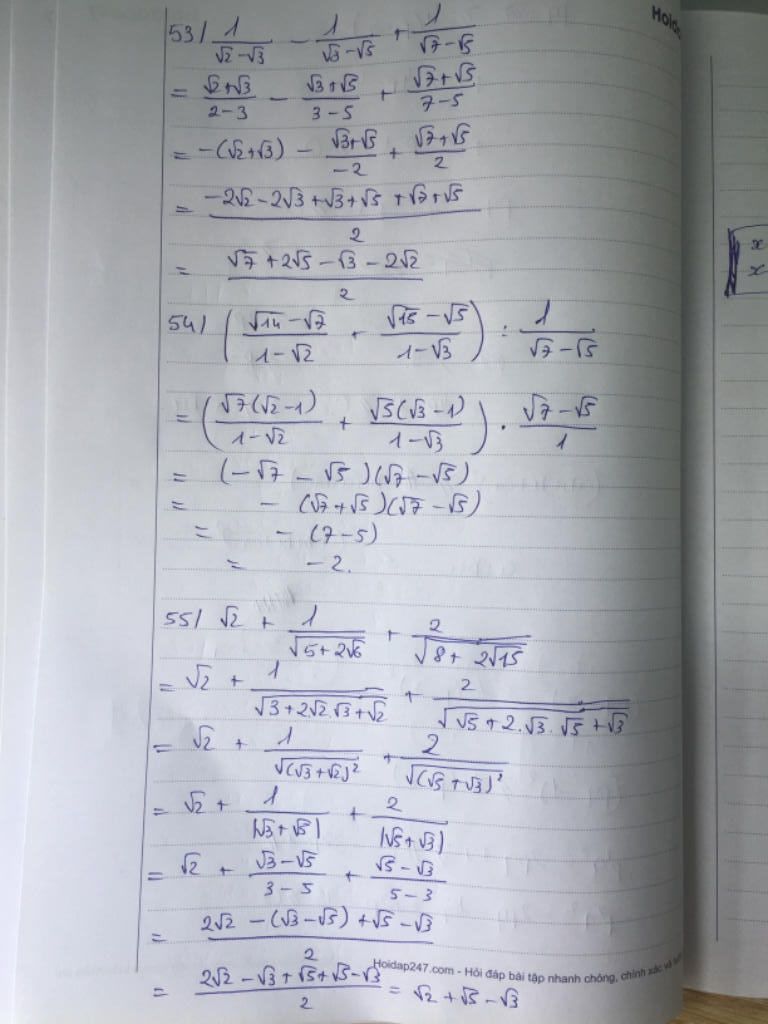 Hoid
53/ 1/(√2-√3) - 1/(√3-√5) + 1/(√7-√5)
= (√2+√3)/(2-3) - (√3+√5)/(3-5) + (√7+√5)/(7-5)
= -(√2+√3) - (√3+√5)/(-2) + (√7+√5)/2
= (-2√2-2√3+√3+√5+√7+√5)/2
= (√7+2√5-√3-2√2)/2
54/ ((√14-√7)/(1-√2) + (√15-√5)/(1-√3)) : 1/(√7-√5)
= (√7(√2-1)/(1-√2) + √5(√3-1)/(1-√3)) . (√7-√5)/1
= (-√7-√5)(√7-√5)
= -(√7+√5)(√7-√5)
= -(7-5)
= -2.
55/ √2 + 1/√(5+2√6) + 2/√(8+2√15)
= √2 + 1/√(3+2√2.√3+√2) + 2/√(√5+2.√3.√5+√3)
= √2 + 1/√((√3+√2)²) + 2/√((√5+√3)²)
= √2 + 1/|√3+√5| + 2/|√5+√3|
= √2 + (√3-√5)/(3-5) + (√5-√3)/(5-3)
= (2√2-(√3-√5)+√5-√3)/2
Hoidap247.com - Hỏi đáp bài tập nhanh chóng, chính xác và
= (2√2-√3+√5+√5-√3)/2 = √2+√5-√3
x
x